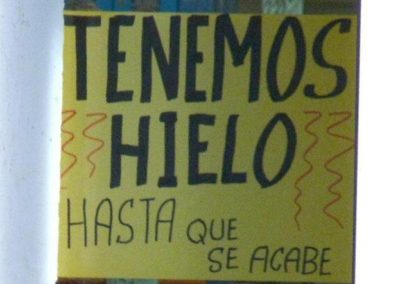 TENEMOS
HIELO
HASTA QUE
SE ACABE